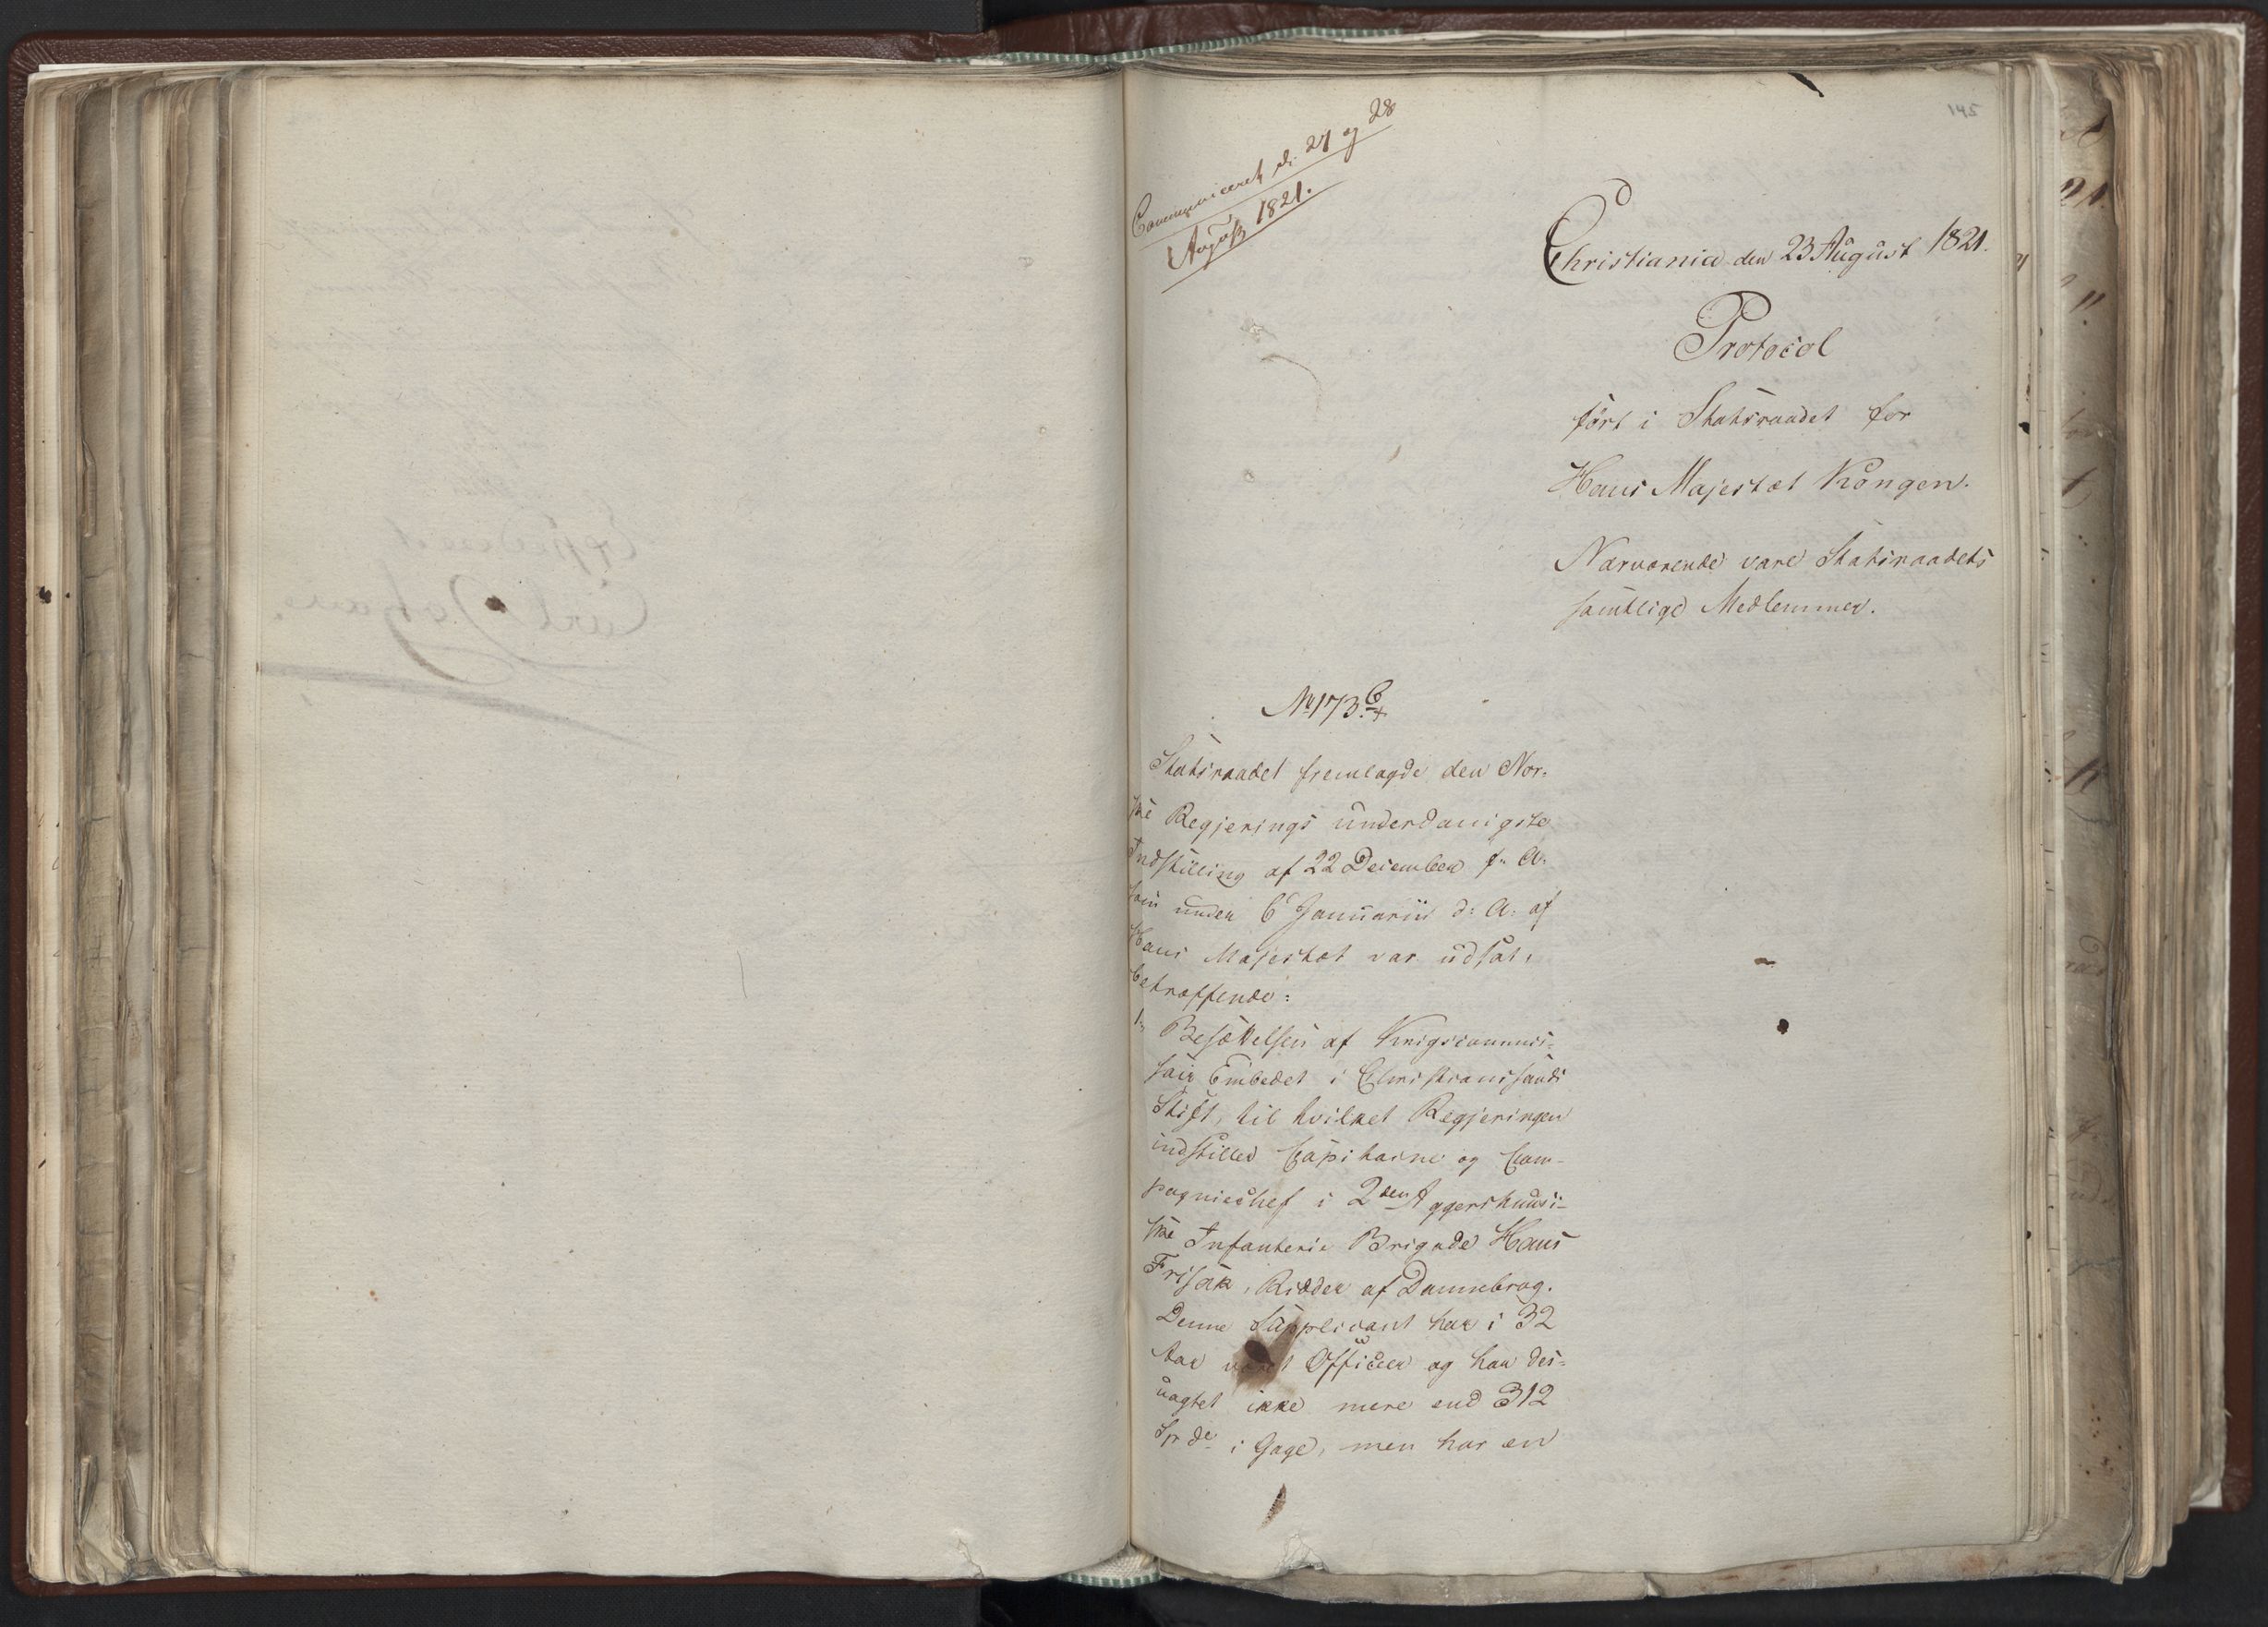 Communiceret d. 27 og 28
August 1821.
145
Christiania den 23 August 1821.
Protocol
ført i Statsraadet for
Hans Majestæt Kongen.
Nærværende vare Statsraadets
samtlige Medlemmer.
No 173.
Statsraadet fremlagde den Nor-
ske Regjerings underdanigste
Indstilling af 22 December f: A:
som under 6 Januarii d: A: af
Hans Majestæt var udsat,
betræffende:
1, Besættelsen af Krigscommis-
sair Embedet i Christianssands
Stift, til hvilket Regjeringen
indstiller Capitaine og Com-
pagniechef i 2den Aggershuusi-
ske Infanterie Brigade Hans
Frisak, Ridder af Dannebrog.
Denne Supplicant har i 32
Aar været Officeer og har des-
uagtet ikke mere end 312
Spdr i Gage, men har en